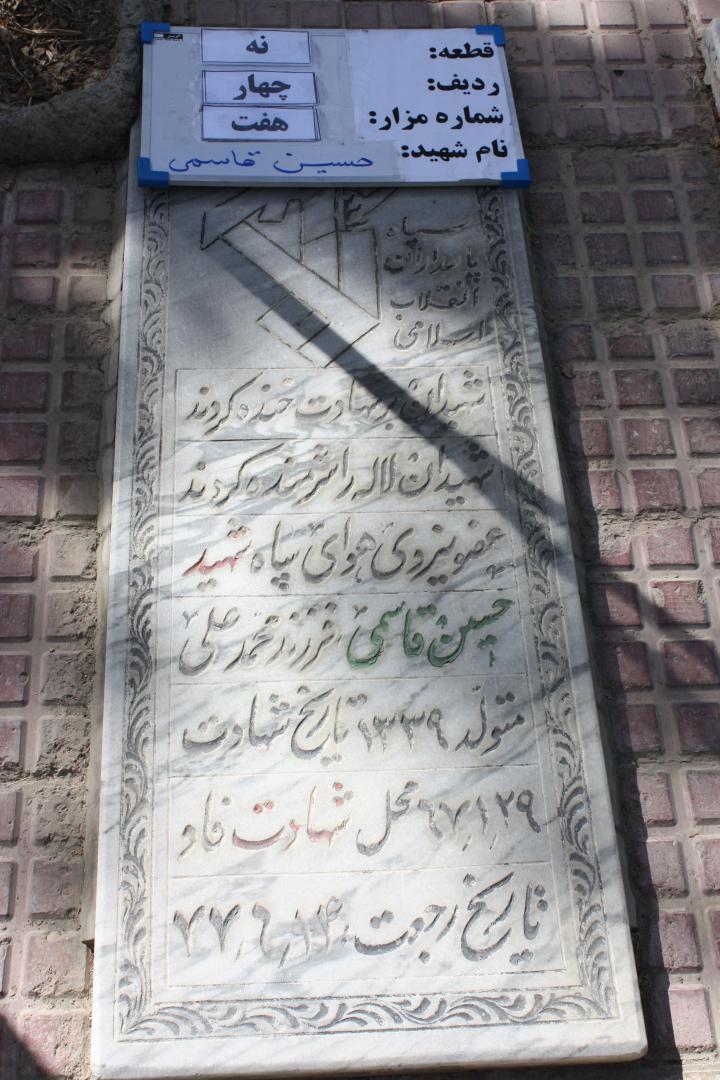 قطعه: نه
ردیف: چهار
شماره مزار: هفت
نام شهید: حسین قاسمی
سپاه
پاسداران
انقلاب
اسلامی
شهیدان بر شهادت خنده کردند
شهیدان لاله را شرمنده کردند
عضو نیروی هوای سپاه شهید
حسین قاسمی فرزند محمد علی
متولد ۱۳۳۹ تاریخ شهادت
۶۷٫۱٫۲۹ محل شهادت فاو
تاریخ رجعت ۷۷٫۶٫۱۴